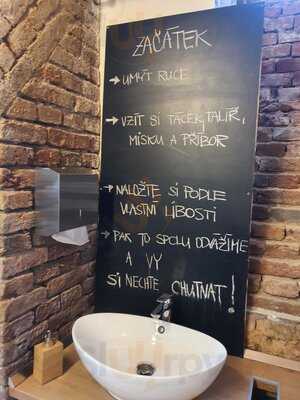 ZAČÁTEK
→ UMÝT RUCE
→ VZÍT SI TÁCEK, TALÍŘ,
MISKU A PŘÍBOR
→ NALOŽTE SI PODLE
VLASTNÍ LIBOSTI
→ PAK TO SPOLU ODVÁŽÍME
A VY
SI NECHTE CHUTNAT!